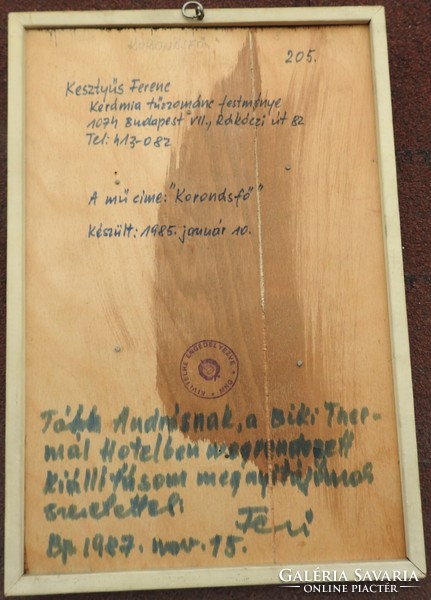 205.
Kesztyűs Ferenc
Kerámia tűzzománc festménye
1074 Budapest VII., Rákóczi út 82
Tel: 413-082
A mű címe: "Korondsfő"
Készült: 1985. január 10.
KIVITELRE ENGEDÉLYEZVE
Tóth Andrásnak, a Büki Ther-
mál Hotelben megrendezett
kiállításom megnyitójának
szeretettel:
Feri
Bp. 1987. nov. 15.
GALÉRIA SAVARIA
ONLINE PIACTÉR